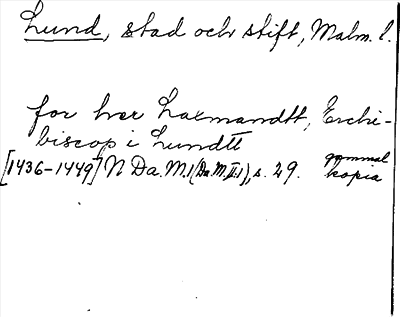 Lund, stad och stift, Malm. l.
for her Laxmandtt, Erchi-
biscop i Lundtt
[1436-1449] N Da. M. 1 (Da. M. II:1), s. 29. gammal
kopia